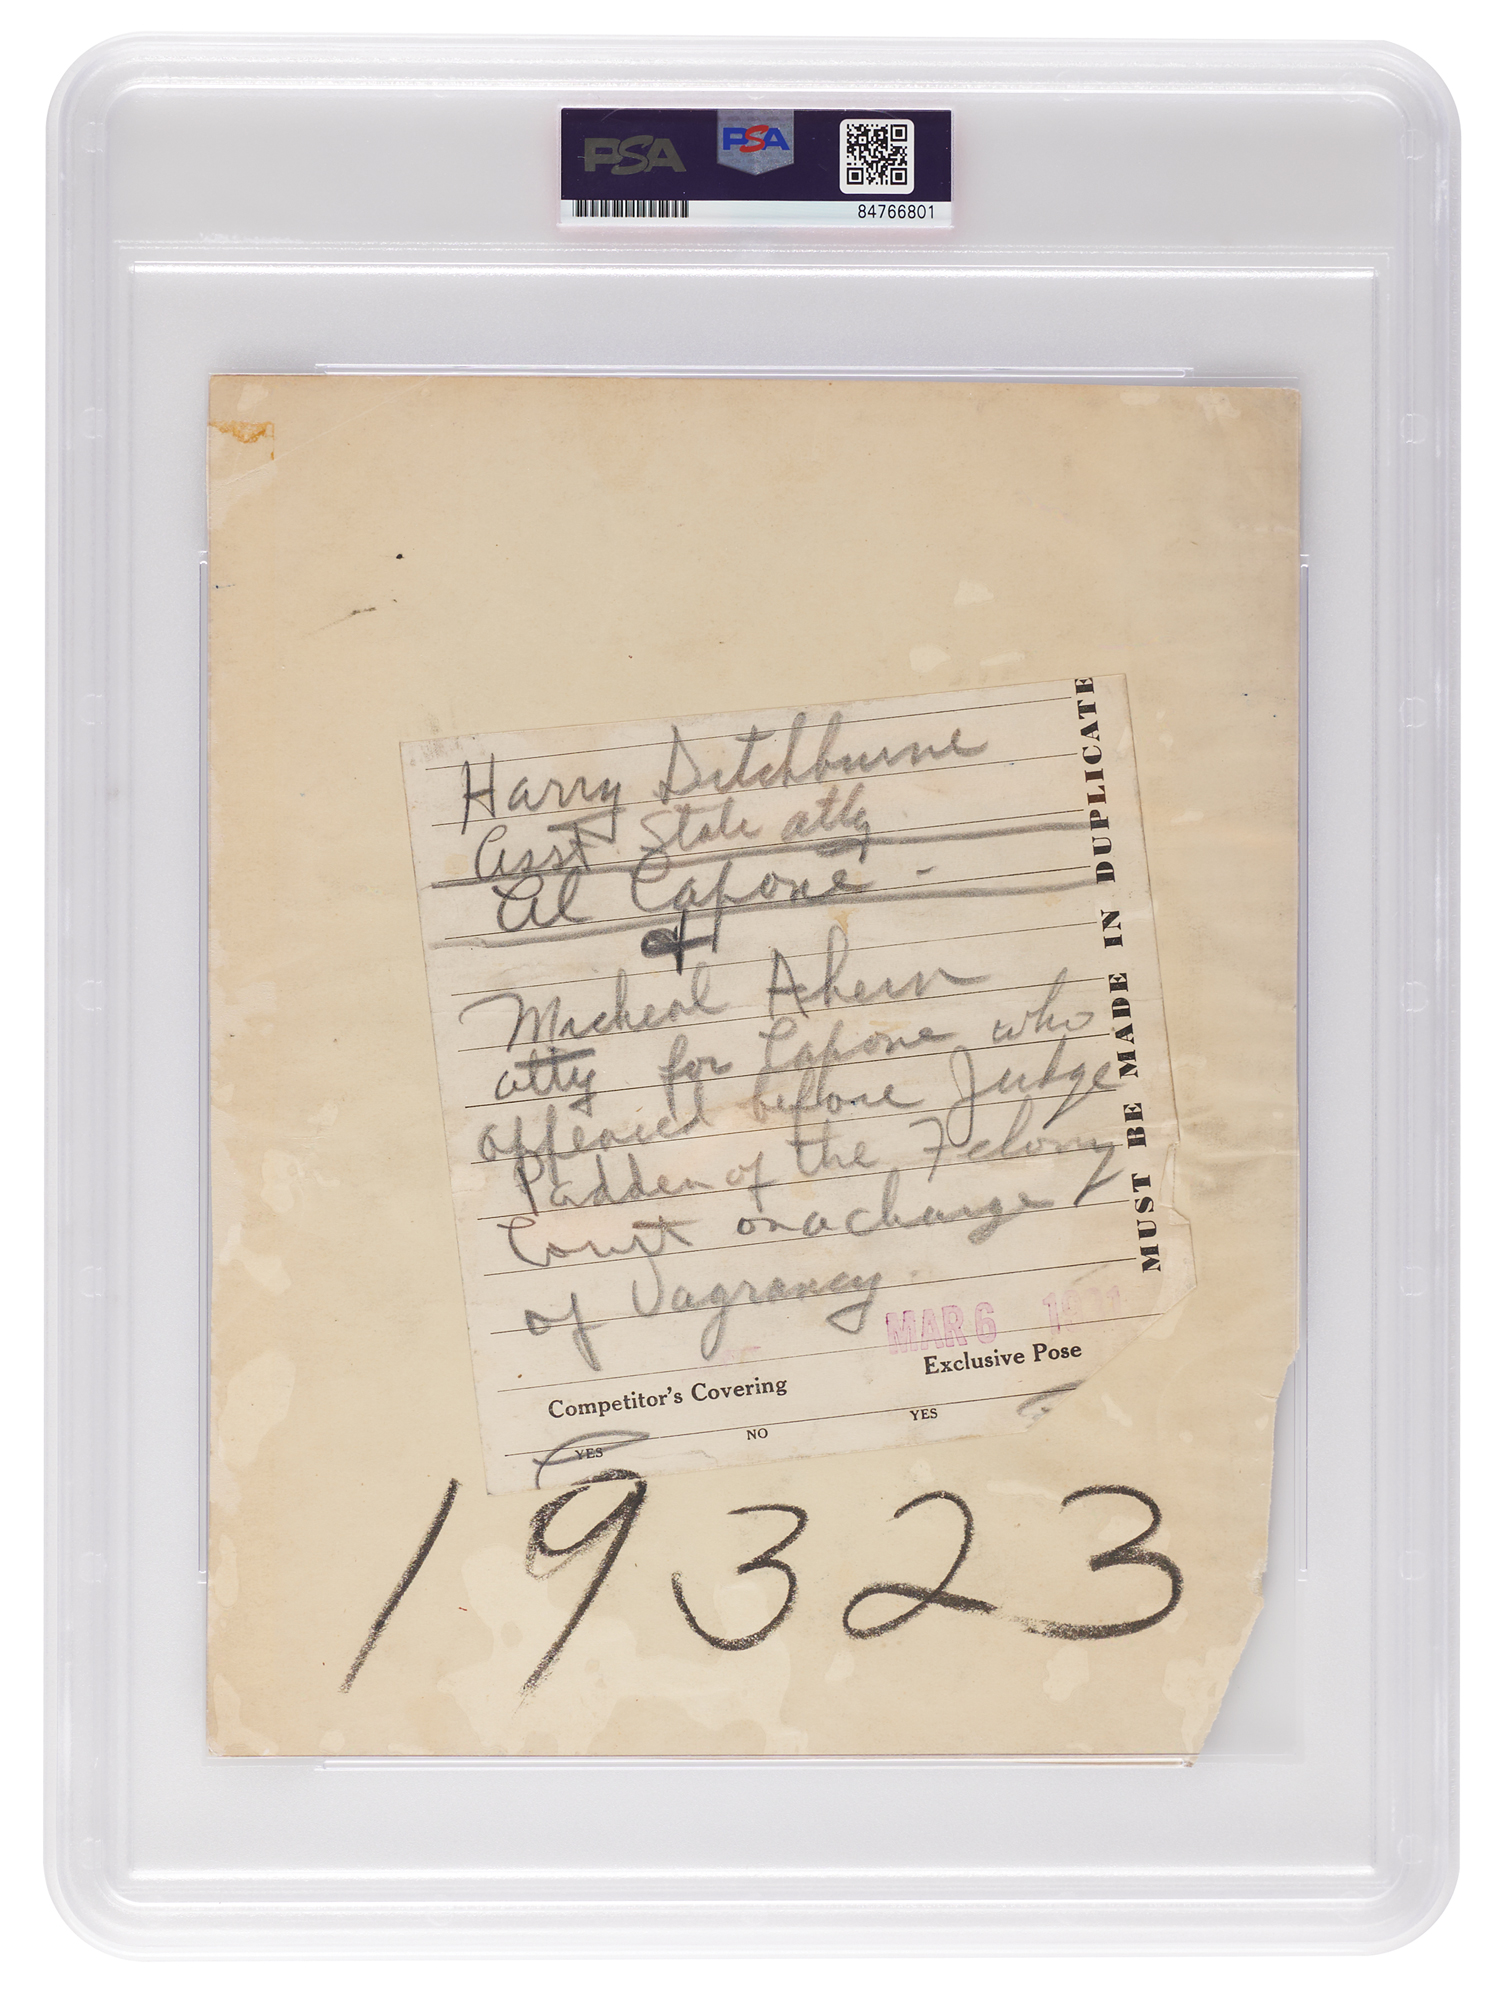 PSA
PSA
84766801
Harry Ditchburne
Asst. State atty
Al Capone -
&
Micheal Ahern
atty for Capone who
appeared before Judge
Padden of the Felony
Court on a charge
of Vagrancy.
MAR 6
Competitor's Covering Exclusive Pose
YES NO YES
MUST BE MADE IN DUPLICATE
19323